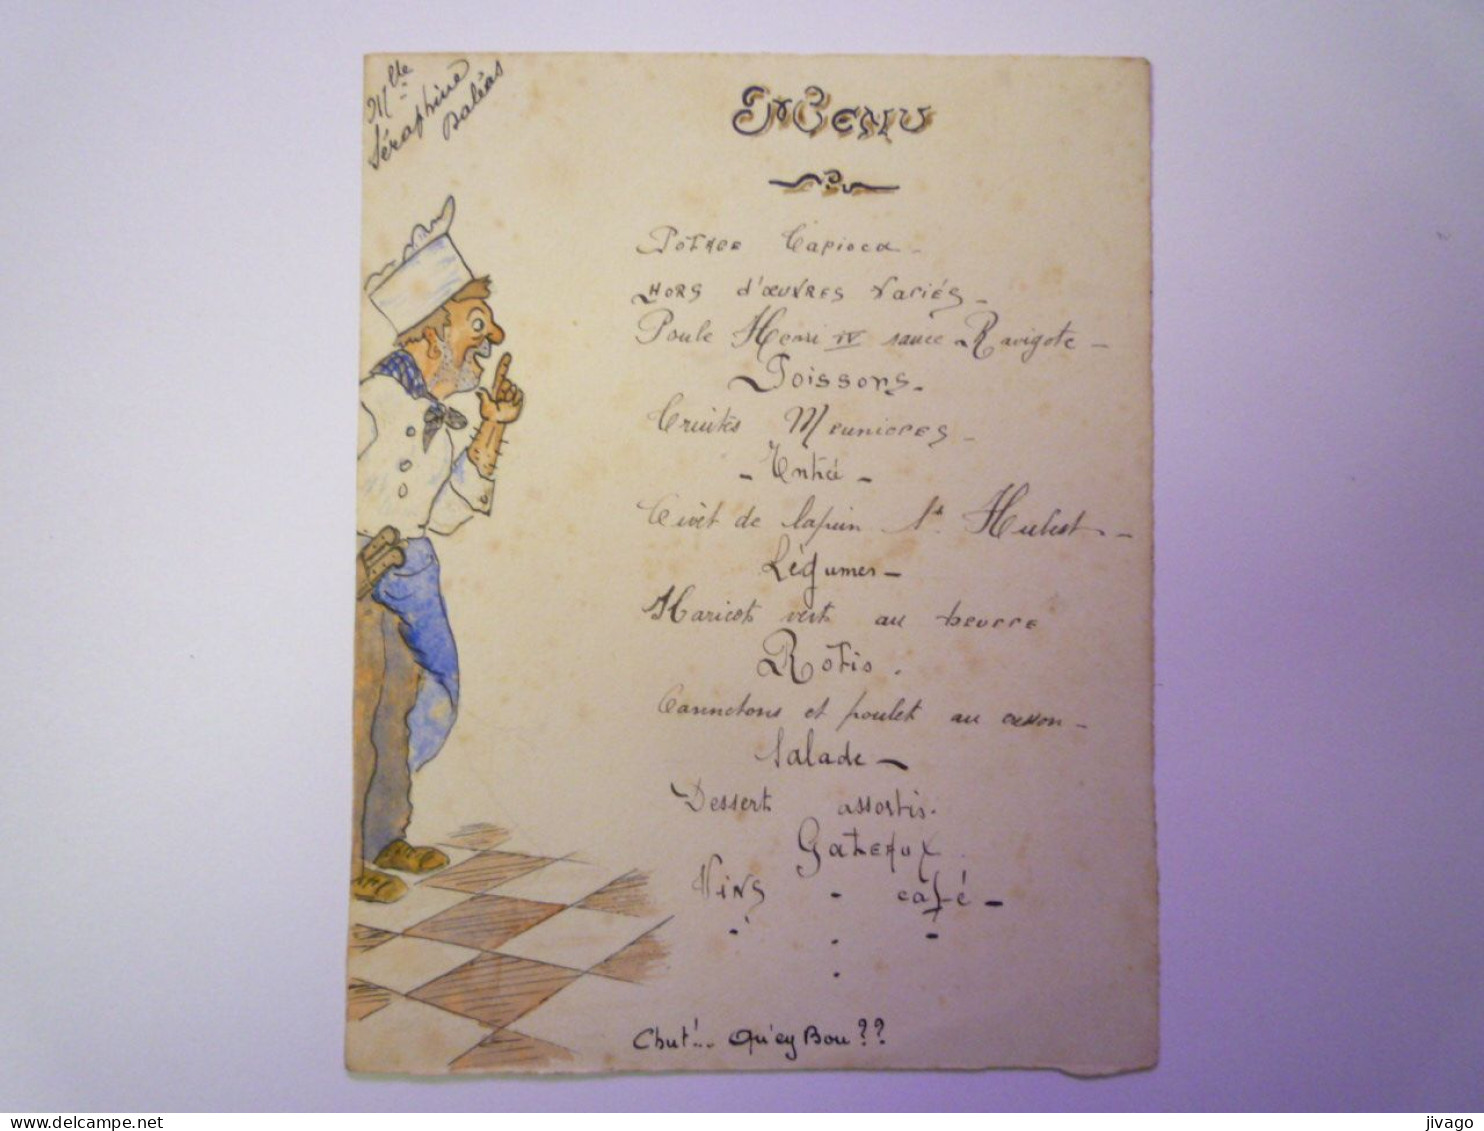 Mlle
Séraphine
Baléas
Menu
Potage Tapioca -
Hors d'œuvres variés -
Poule Henri IV sauce Ravigote -
Poissons -
Truites Meunieres -
- Entrée -
Civêt de lapin St Hubert -
Légumes -
Haricots verts au beurre
Rôtis .
Cannetons et poulet au cresson -
Salade -
Dessert assortis.
Gateaux
Vins - café -
Chut!.. Qu'ey Bou??
delcampe.net
jivago